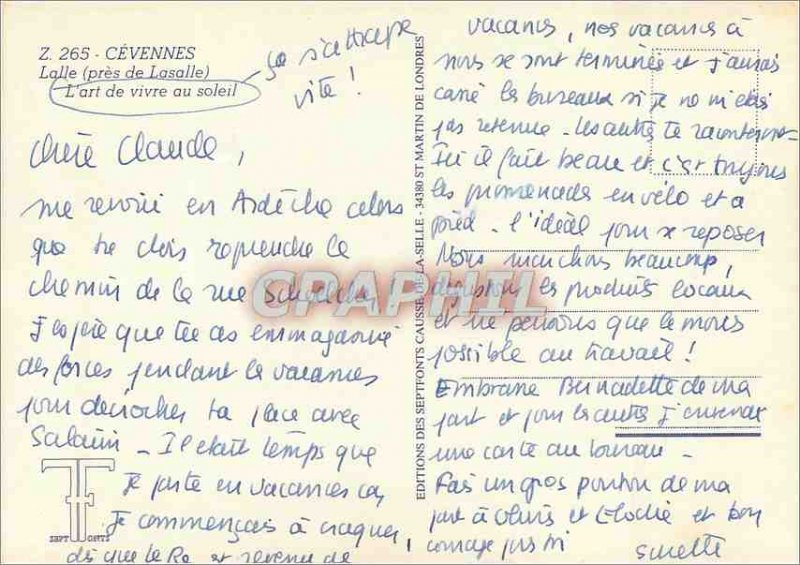 Z. 265 - CÉVENNES
Lalle (près de Lasalle)
L'art de vivre au soleil
ça s'attrape
vite !
Chère Claude,
me revoici en Ardèche alors
que tu dois reprendre le
chemin de la rue
J'espère que tu as emmagasiné
des forces pendant les vacances
pour décrocher ta place avec
Salaün - Il était temps que
je parte en vacances car
je commençais à craquer,
dès que le Ro est revenu de
SEPT FONTS
EDITIONS DES SEPTFONTS CAUSSE DE LA SELLE - 34380 ST MARTIN DE LONDRES
vacances, nos vacances à
nous se sont terminées et j'aurais
cassé les bureaux si je ne m'étais
pas retenue - Les autres te raconteront -
Ici il fait beau et c'est toujours
les promenades en vélo et à
pied - l'idéal pour se reposer
Nous marchons beaucoup,
dégustons les produits locaux
et ne pensons que le moins
possible au travail !
Embrasse Bernadette de ma
part et pour les autres j'enverrai
une carte au bureau -
Fais un gros poutou de ma
part à et Elodie et bon
courage
Suzette
CPAPHIL